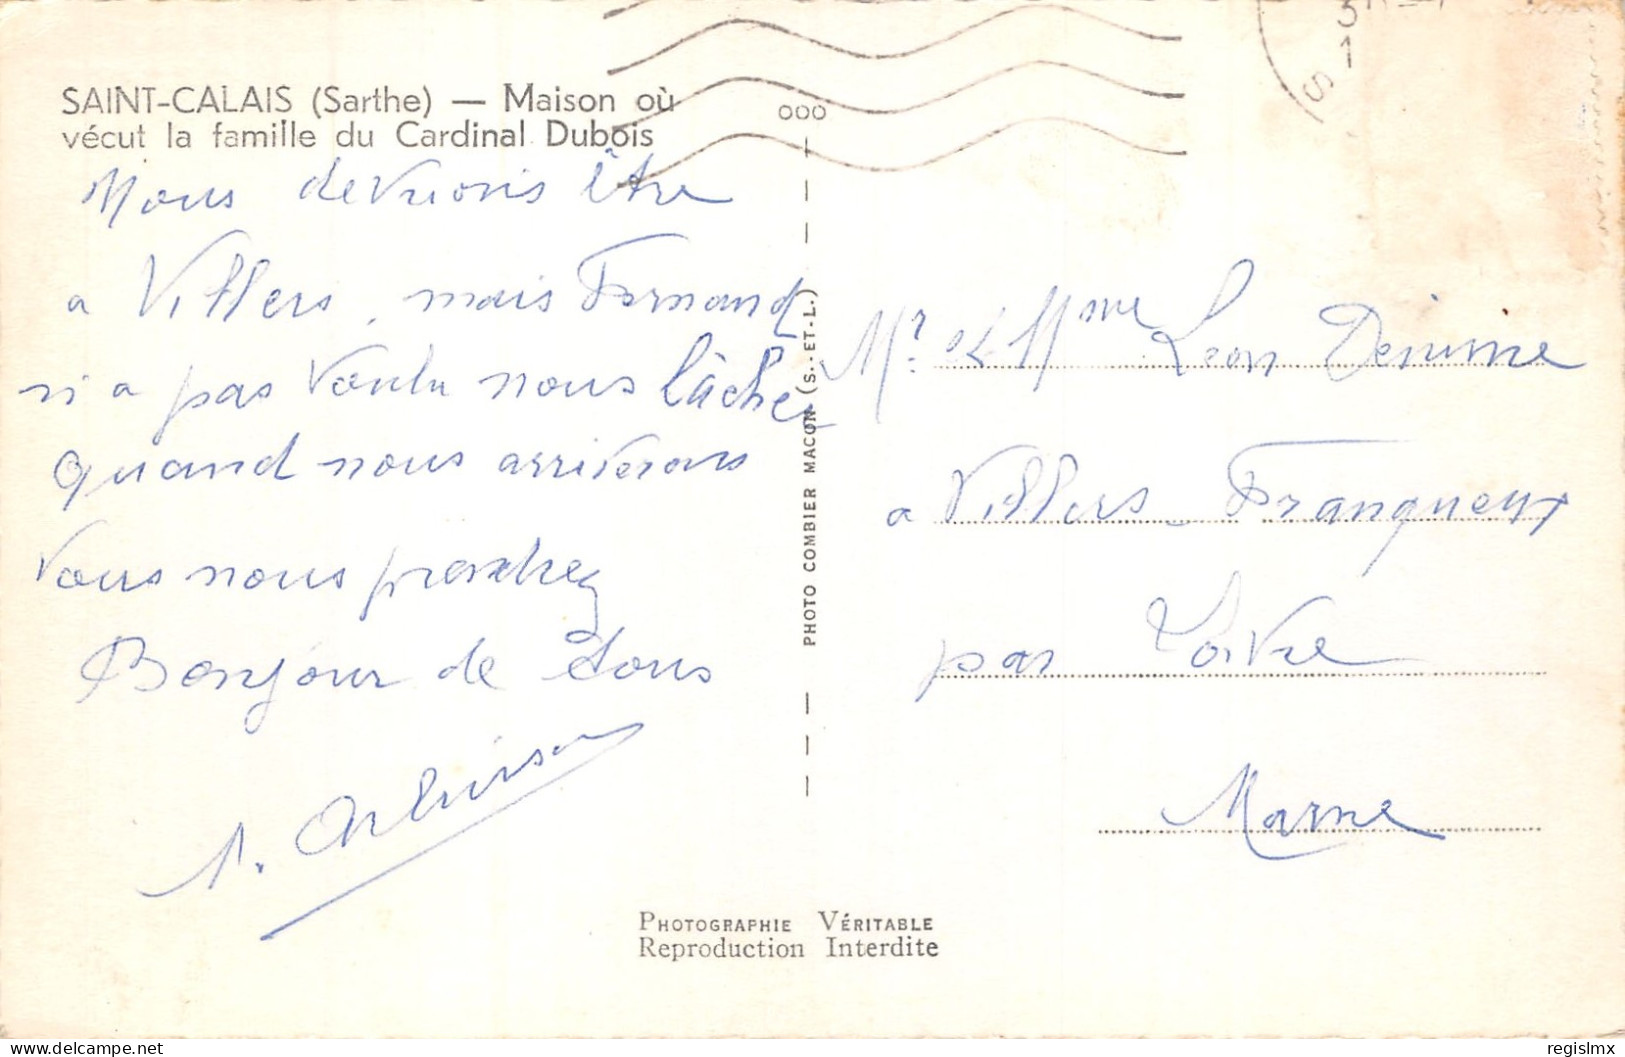 SAINT-CALAIS (Sarthe) — Maison où
vécut la famille du Cardinal Dubois
000
Nous devrions être
a Villers, mais Fernand
n'a pas voulu nous lâcher
quand nous arriverons
vous nous prendrez
Bonjour de tous
PHOTO COMBIER MACON (S.-ET-L.)
Mr. et Mme Leon
a Villers-Franqueux
par Loivre
Marne
PHOTOGRAPHIE VÉRITABLE
Reproduction Interdite
delcampe.net
regislmx